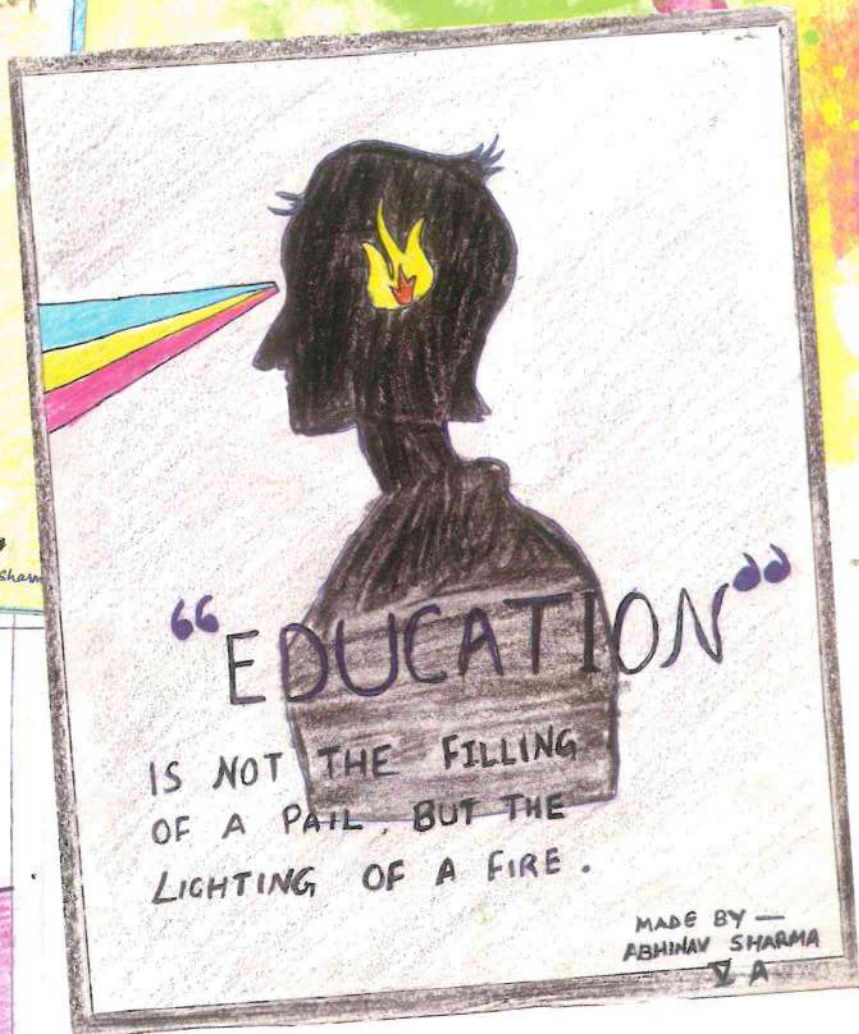 "EDUCATION"
IS NOT THE FILLING
OF A PAIL. BUT THE
LIGHTING OF A FIRE.
MADE BY —
ABHINAV SHARMA
V A
Sharm